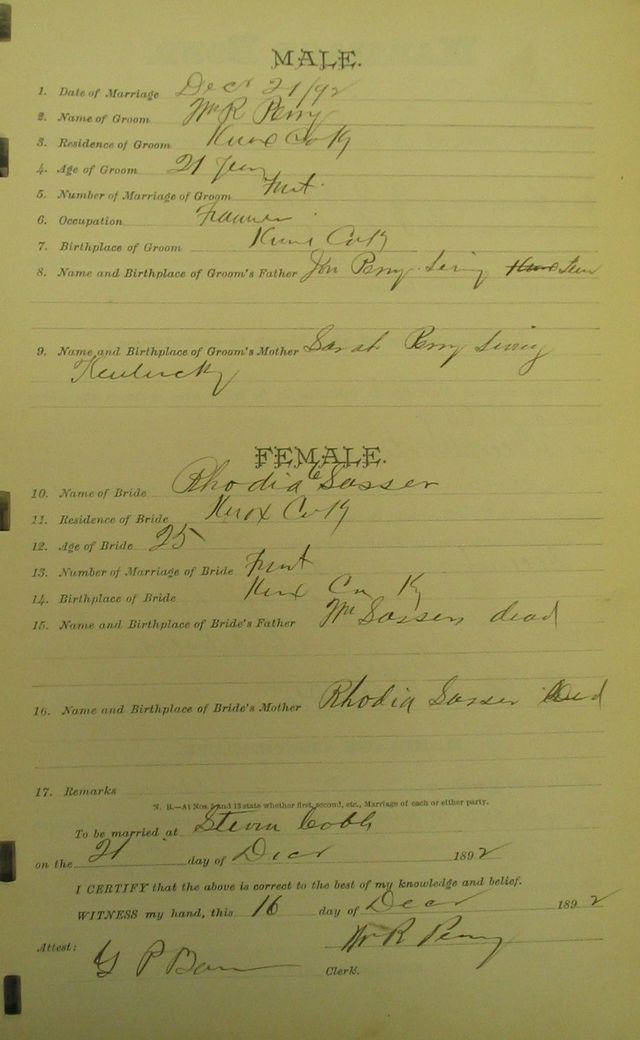 MALE.
1. Date of Marriage Decr 21/92
2. Name of Groom Wm R Perry
3. Residence of Groom Knox Co Ky
4. Age of Groom 21 years
5. Number of Marriage of Groom First
6. Occupation Farmer
7. Birthplace of Groom Knox Co Ky
8. Name and Birthplace of Groom's Father Perry Living
9. Name and Birthplace of Groom's Mother Sarah Perry Living
Kentucky
FEMALE.
10. Name of Bride Rhodia C Sasser
11. Residence of Bride Knox Co Ky
12. Age of Bride 25
13. Number of Marriage of Bride First
14. Birthplace of Bride Knox Co Ky
15. Name and Birthplace of Bride's Father Wm Sasser dead
16. Name and Birthplace of Bride's Mother Rhodia Sasser Dead
17. Remarks
N. B.—At Nos. 5 and 13 state whether first, second, etc., Marriage of each or either party.
To be married at Cobb
on the 21 day of Decr 1892
I CERTIFY that the above is correct to the best of my knowledge and belief.
WITNESS my hand, this 16 day of Decr 1892
Wm R Perry
Attest:
G P
Clerk.